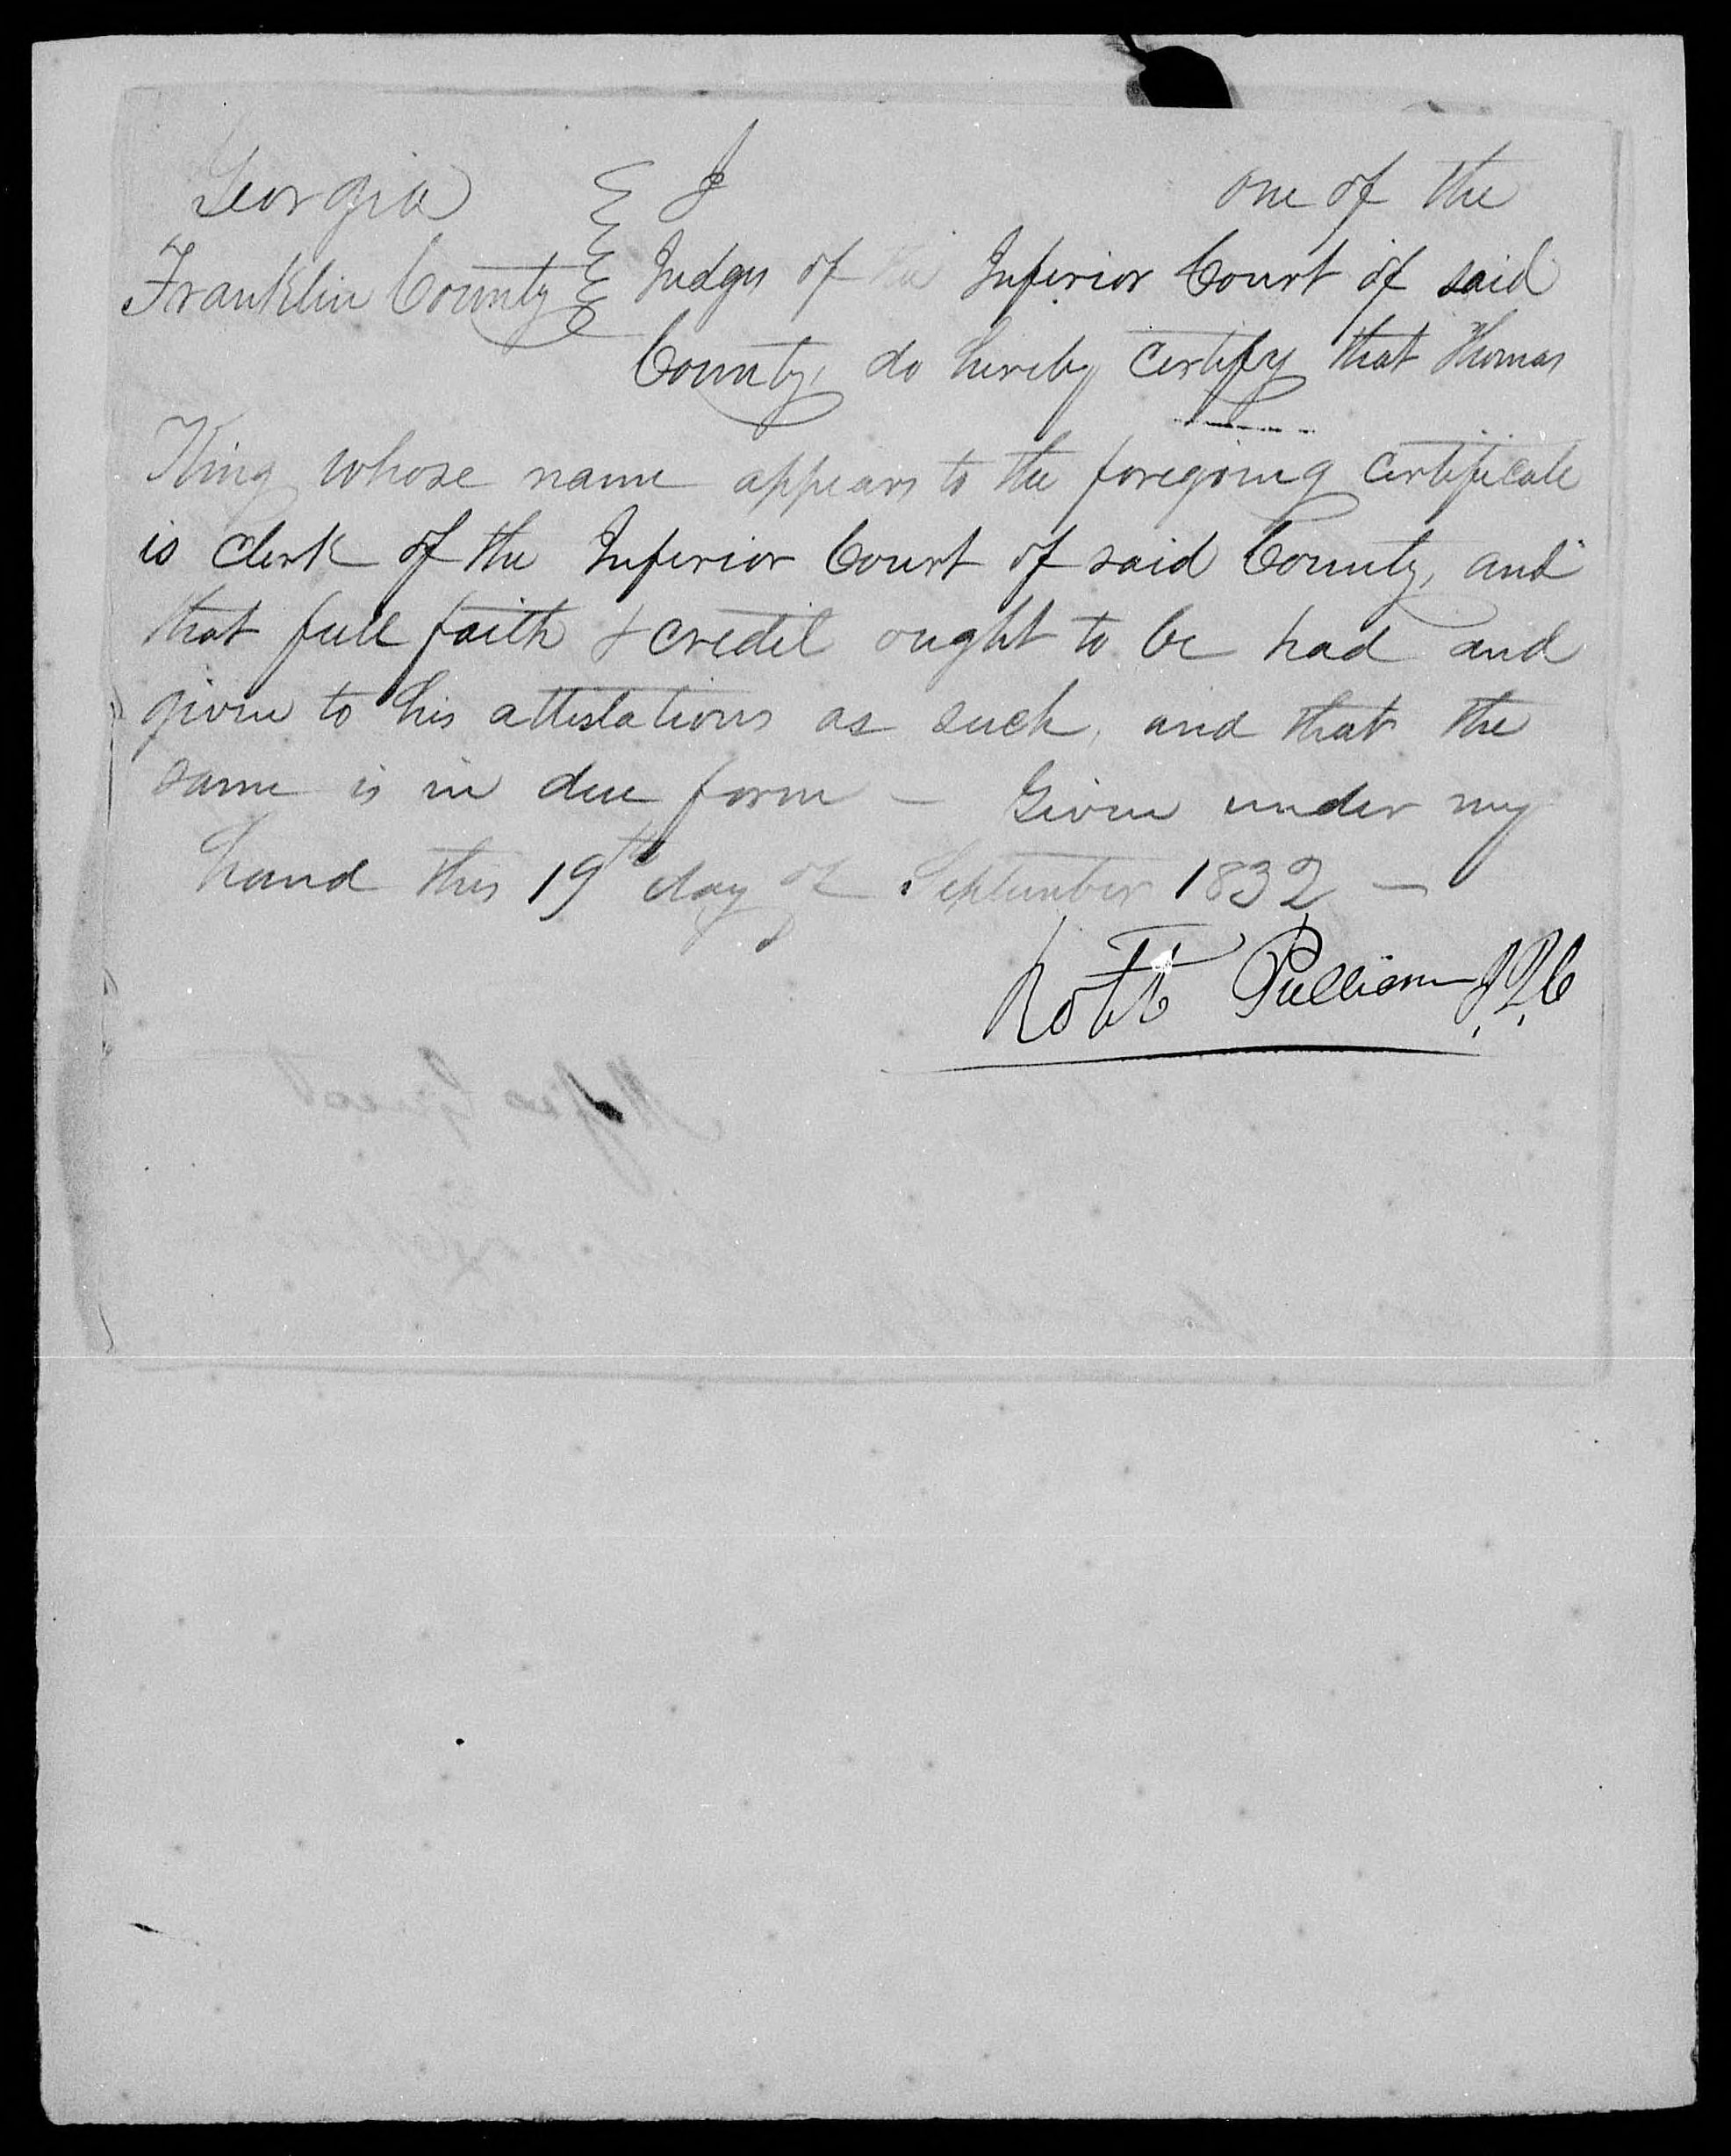 Georgia } I one of the
Franklin County } Judges of the Inferior Court of said
County, do hereby certify that Thomas
King whose name appears to the foregoing certificate
is clerk of the Inferior Court of said County, and
that full faith & credit ought to be had and
given to his attestations as such, and that the
same is in due form — Given under my
hand this 19th day of September 1832 —
Robt Pulliam J.I.C